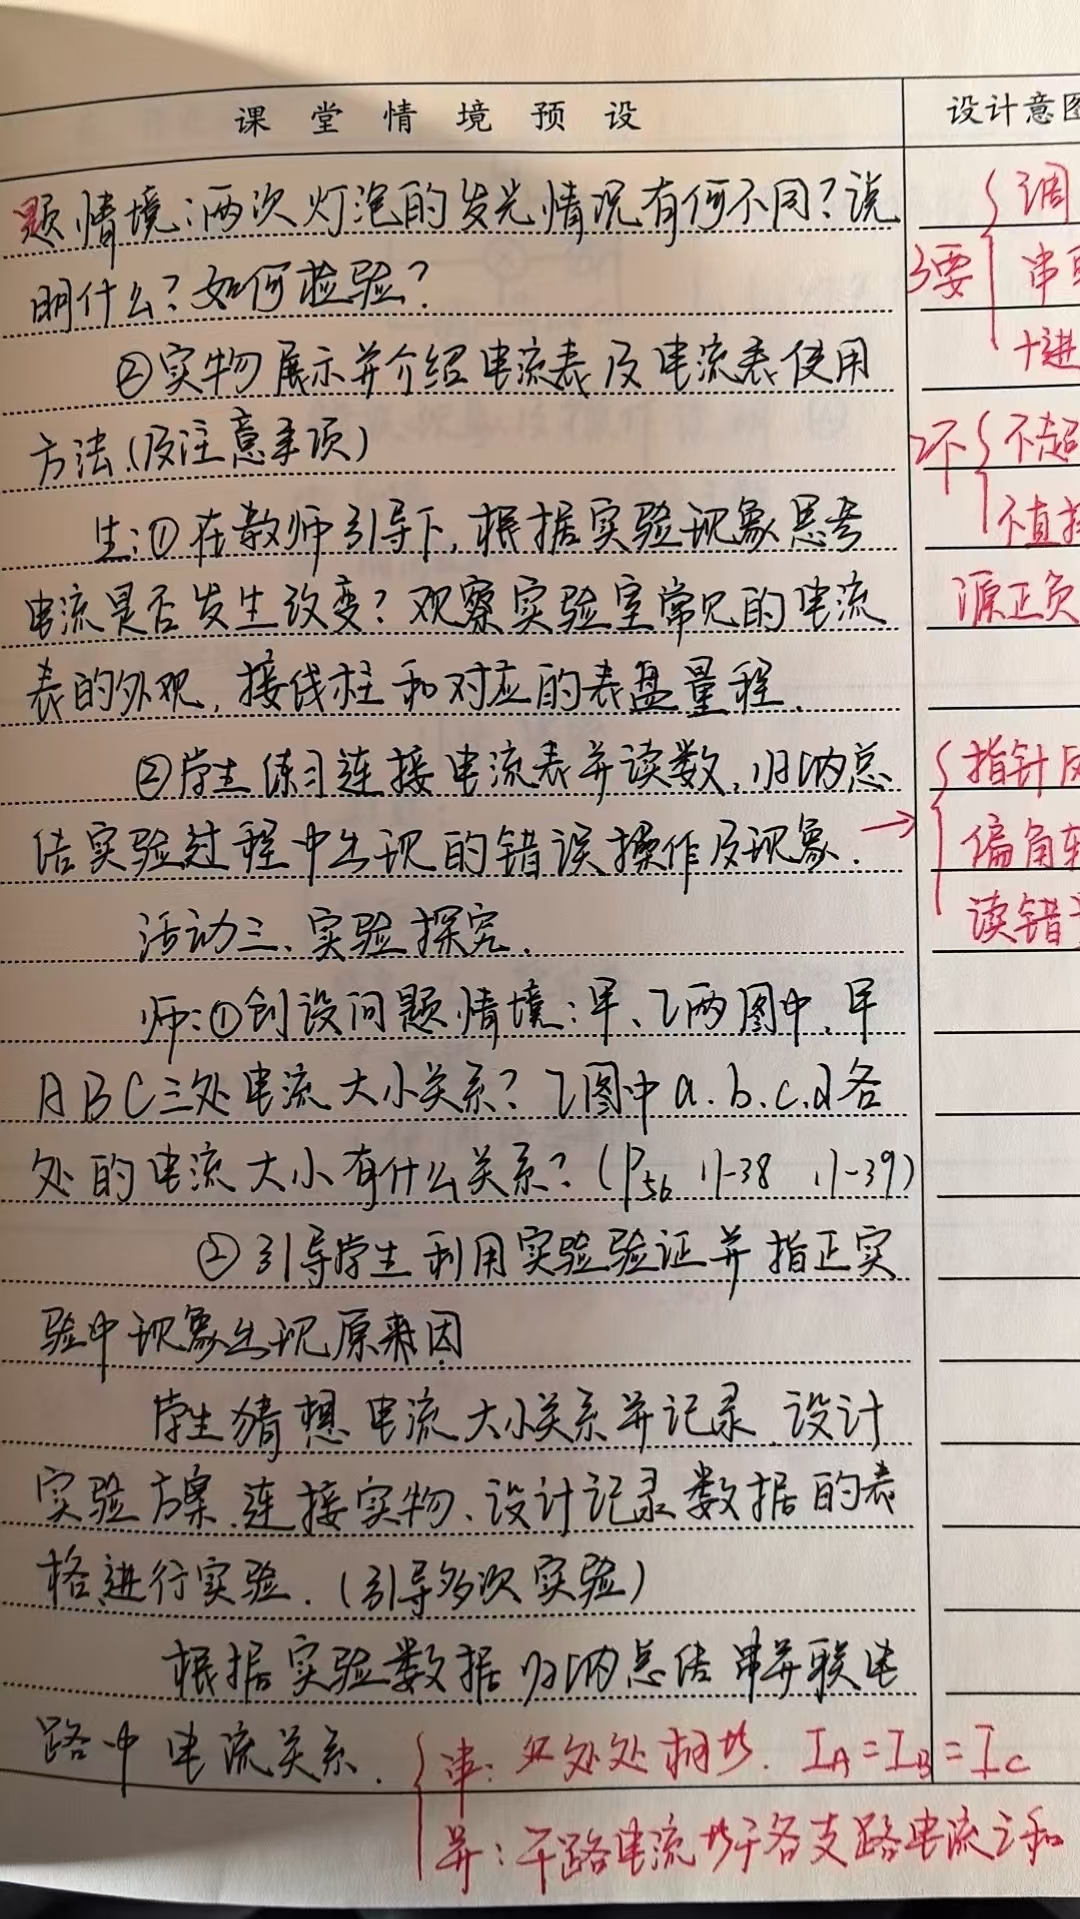 课堂情境预设
设计意图
题情境:两次灯泡的发光情况有何不同?说
明什么?如何检验?
②实物展示并介绍电流表及电流表使用
方法(及注意事项)
生:①在教师引导下,根据实验现象思考
电流是否发生改变?观察实验室常见的电流
表的外观,接线柱和对应的表盘量程.
②学生练习连接电流表并读数,归纳总
结实验过程中出现的错误操作及现象. →
活动三、实验探究.
师:①创设问题情境:甲、乙两图中,甲
A B C三处电流大小关系?乙图中a.b.c.d各
处的电流大小有什么关系?(P56 11-38 11-39)
②引导学生利用实验验证并指正实
验中现象出现原因
学生猜想电流大小关系并记录.设计
实验方案.连接实物、设计记录数据的表
格进行实验.(引导多次实验)
根据实验数据归纳总结串并联电
路中电流关系.
串: 处处相等. IA=IB=IC
并:干路电流等于各支路电流之和
3要
调
串
+进
2不
不超
不直接
源正负
指针反
偏角
读错